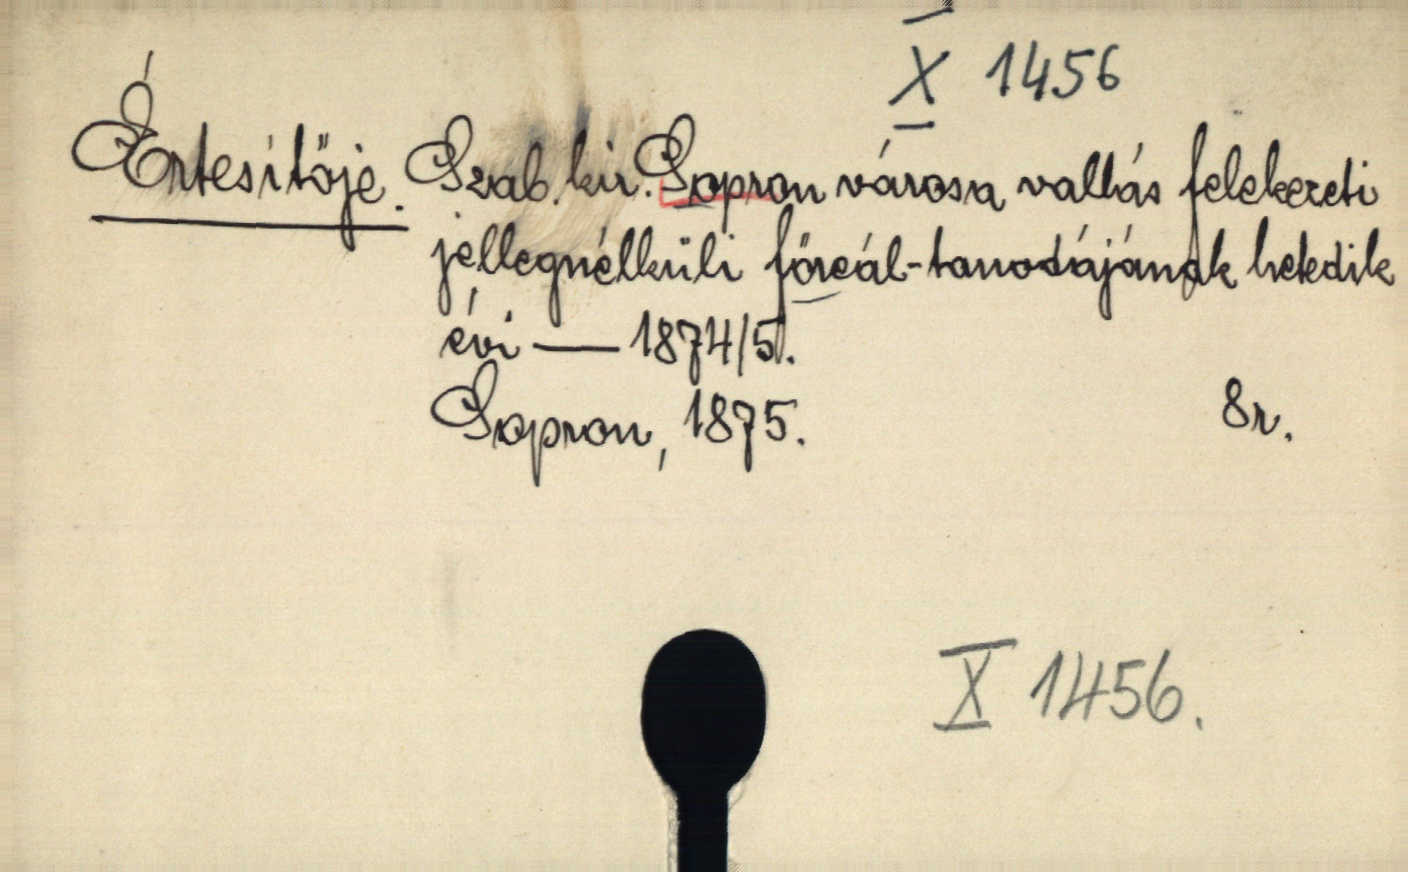 X 1456
Értesítője. Szab. kir. Sopron városa vallás felekezeti
jellegnélküli főreál-tanodájának hetedik
évi — 1874/5.
Sopron, 1875. 8r.
X 1456.